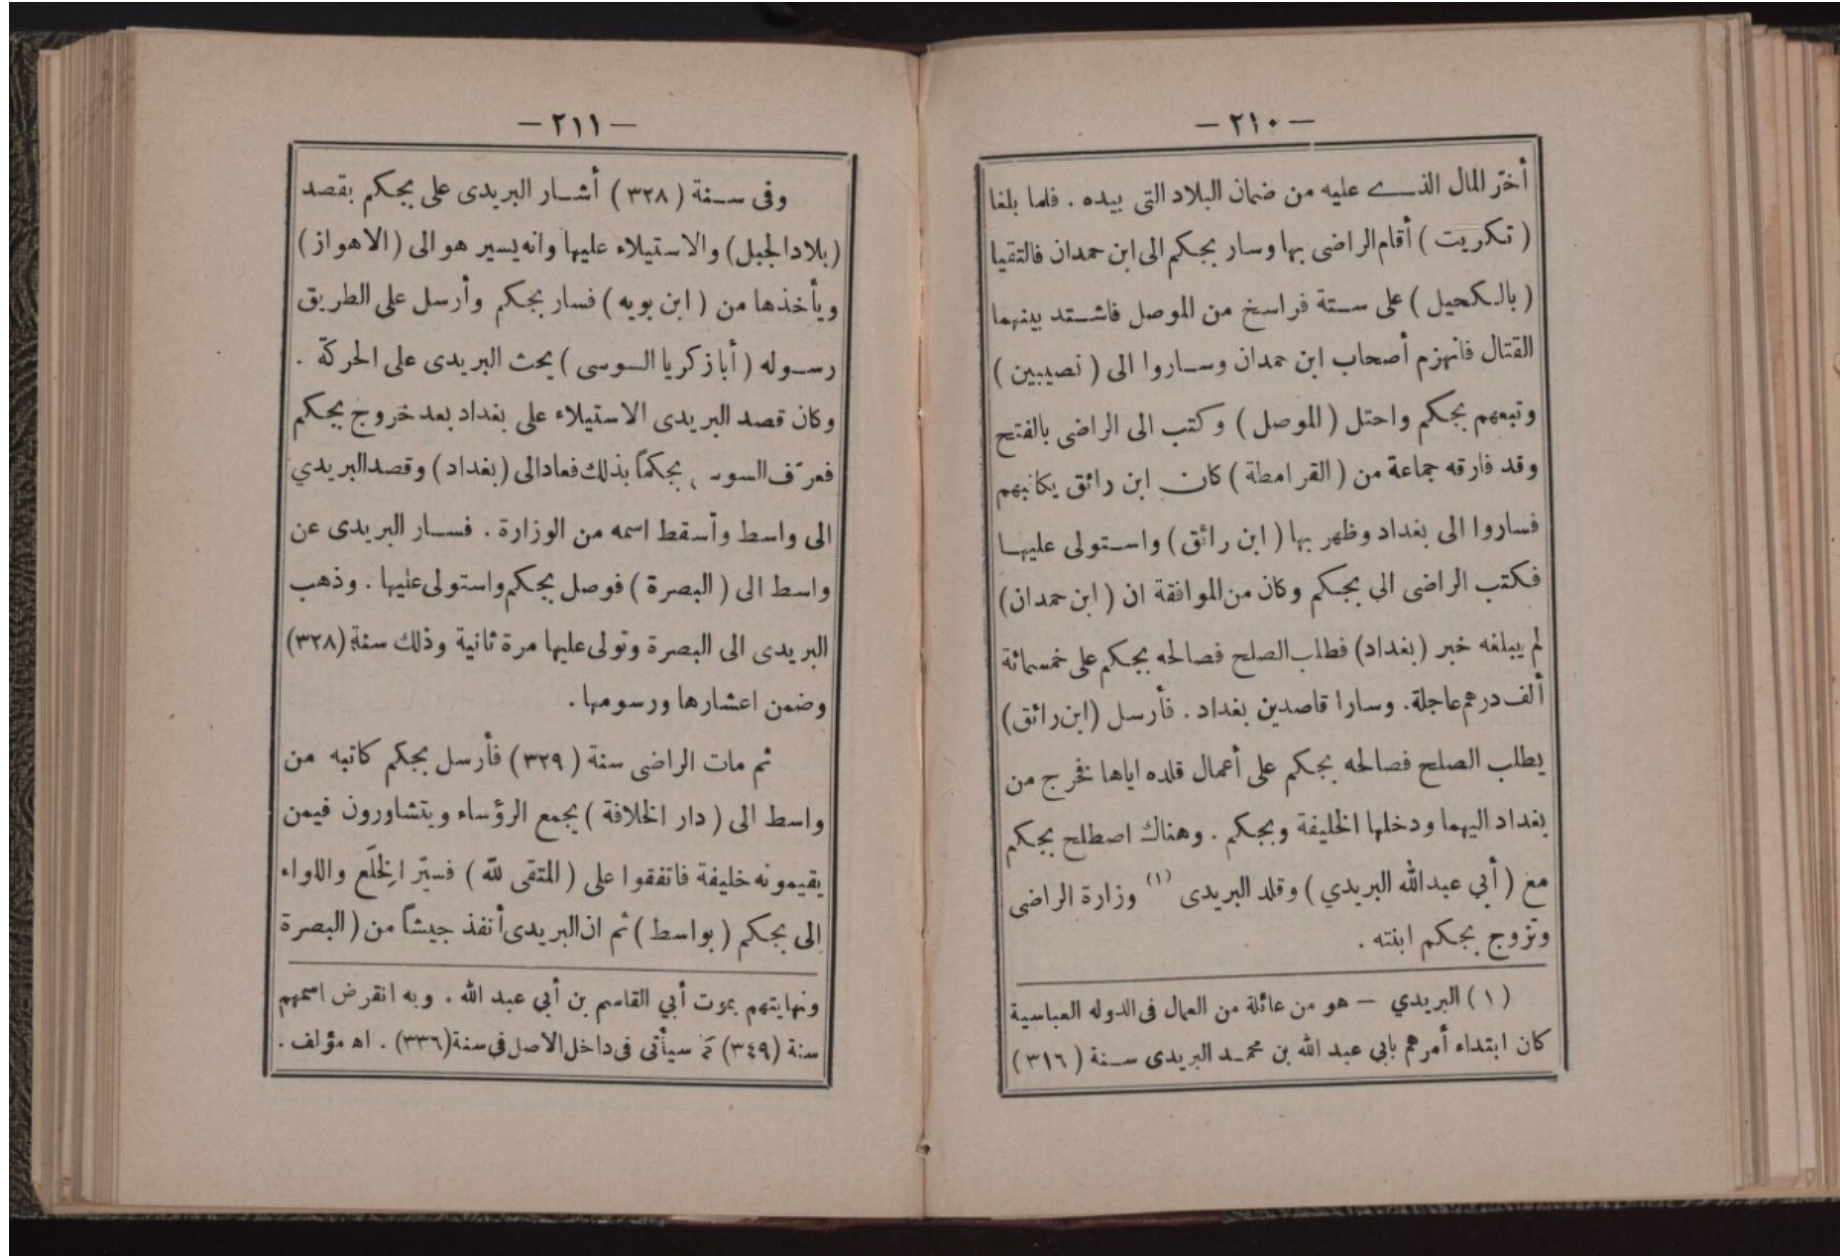 — ٢١٠ —
أخرّ المال الذي عليه من ضمان البلاد التى بيده . فلما بلغا
( تكريت ) أقام الراضى بها وسار بجكم الى ابن حمدان فالتقيا
( بالكحيل ) على ستة فراسخ من الموصل فاشتد بينهما
القتال فانهزم أصحاب ابن حمدان وساروا الى ( نصيبين )
وتبعهم بجكم واحتل ( الموصل ) وكتب الى الراضى بالفتح
وقد فارقه جماعة من ( القرامطة ) كان ابن رائق يكاتبهم
فساروا الى بغداد وظهر بها ( ابن رائق ) واستولى عليها
فكتب الراضى الي بجكم وكان من الموافقة ان ( ابن حمدان )
لم يبلغه خبر ( بغداد ) فطلب الصلح فصالحه بجكم على خمسمائة
ألف درهم عاجلة. وسارا قاصدين بغداد . فأرسل ( ابن رائق )
يطلب الصلح فصالحه بجكم على أعمال قلده اياها نخرج من
بغداد اليهما ودخلها الخليفة وبجكم . وهناك اصطلح بجكم
مع ( أبي عبد الله البريدي ) وقلد البريدى (١) وزارة الراضى
وتزوج بجكم ابنته .
( ١ ) البريدي — هو من عائلة من العمال فى الدوله العباسية
كان ابتداء أمرهم بابي عبد الله بن محمد البريدى سنة ( ٣١٦ )
— ٢١١ —
وفى سنة ( ٣٢٨ ) أشار البريدى على بجكم بقصد
( بلاد الجبل ) والاستيلاء عليها وانه يسير هو الى ( الاهواز )
ويأخذها من ( ابن بويه ) فسار بجكم وأرسل على الطريق
رسوله ( أبا زكريا السوسى ) يحث البريدى على الحركة .
وكان قصد البريدى الاستيلاء على بغداد بعد خروج بجكم
فعرّف بجكماً بذلك فعاد الى ( بغداد ) وقصد البريدي
الى واسط وأسقط اسمه من الوزارة . فسار البريدى عن
واسط الى ( البصرة ) فوصل بجكم واستولى عليها . وذهب
البريدى الى البصرة وتولى عليها مرة ثانية وذلك سنة (٣٢٨)
وضمن اعشارها ورسومها .
ثم مات الراضى سنة ( ٣٢٩ ) فأرسل بجكم كاتبه من
واسط الى ( دار الخلافة ) يجمع الرؤساء ويتشاورون فيمن
يقيمونه خليفة فاتفقوا على ( المتقى لله ) فسيّر الخِلَع واللواء
الى بجكم ( بواسط ) ثم ان البريدى أنفذ جيشاً من ( البصرة
ونهايتهم بموت أبي القاسم بن أبي عبد الله . وبه انقرض اسمهم
سنة (٣٤٩) كما سيأتى فى داخل الاصل فى سنة (٣٣٦) . اه مؤلف .